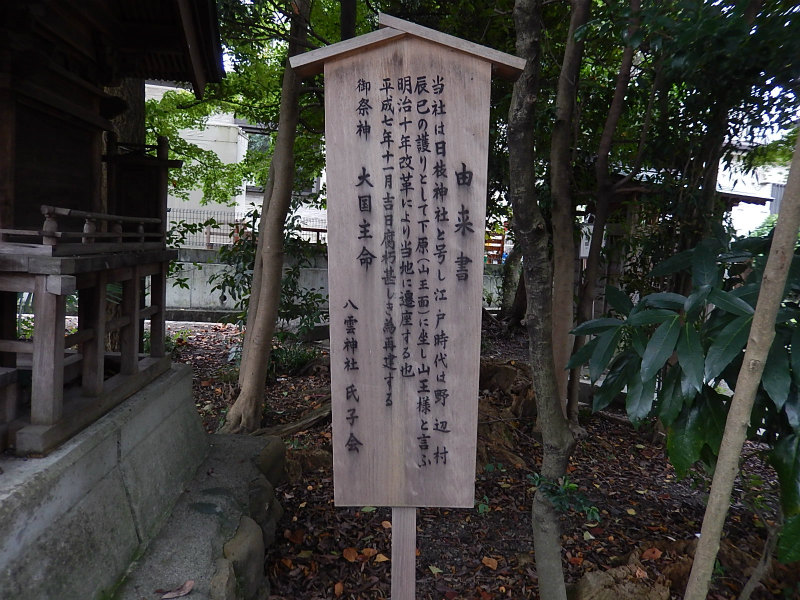 由来書
当社は日枝神社と号し江戸時代野辺村
辰巳の護りとして下原(山王面)に坐し山王様と言ふ
明治十年改革により当地に遷座する也
平成七年十一月吉日腐朽甚しき為再建する
御祭神 大国主命
八雲神社 氏子会